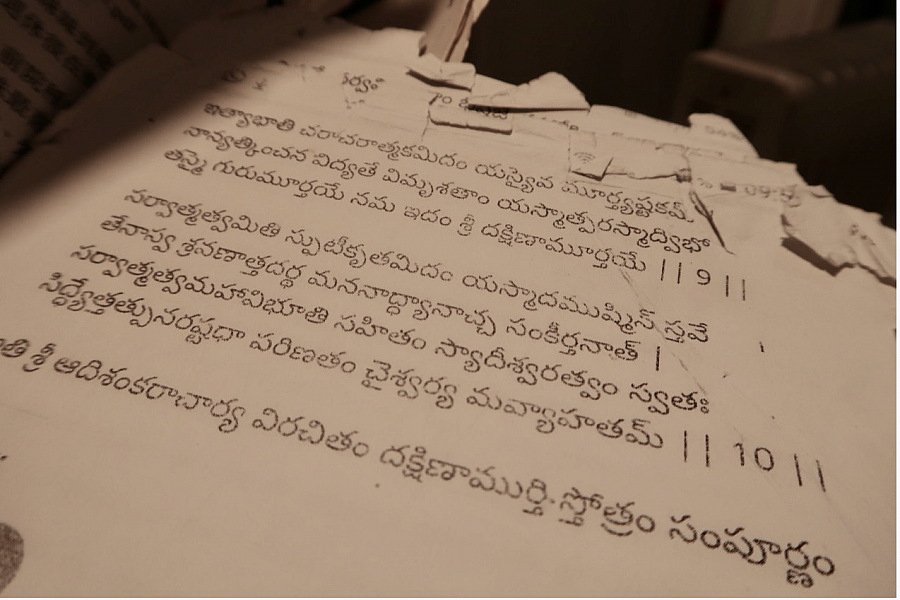 ఇత్యాభాతి చరాచరాత్మకమిదం యస్యైవ మూర్త్యష్టకమ్
నాన్యత్కించన విద్యతే విమృశతాం యస్మాత్పరస్మాద్విభో
తస్మై గురుమూర్తయే నమ ఇదం శ్రీ దక్షిణామూర్తయే || 9 ||
సర్వాత్మత్వమితి స్ఫుటీకృతమిదం యస్మాదముష్మిన్ స్తవే
తేనాస్వ శ్రవణాత్తదర్థ మననాద్ధ్యానాచ్చ సంకీర్తనాత్ |
సర్వాత్మత్వమహావిభూతి సహితం స్యాదీశ్వరత్వం స్వతః
సిద్ధ్యేత్తత్పునరష్టధా పరిణతం చైశ్వర్య మవ్యాహతమ్ || 10 ||
శ్రీ ఆదిశంకరాచార్య విరచితం దక్షిణాముర్తి స్తోత్రం సంపూర్ణం